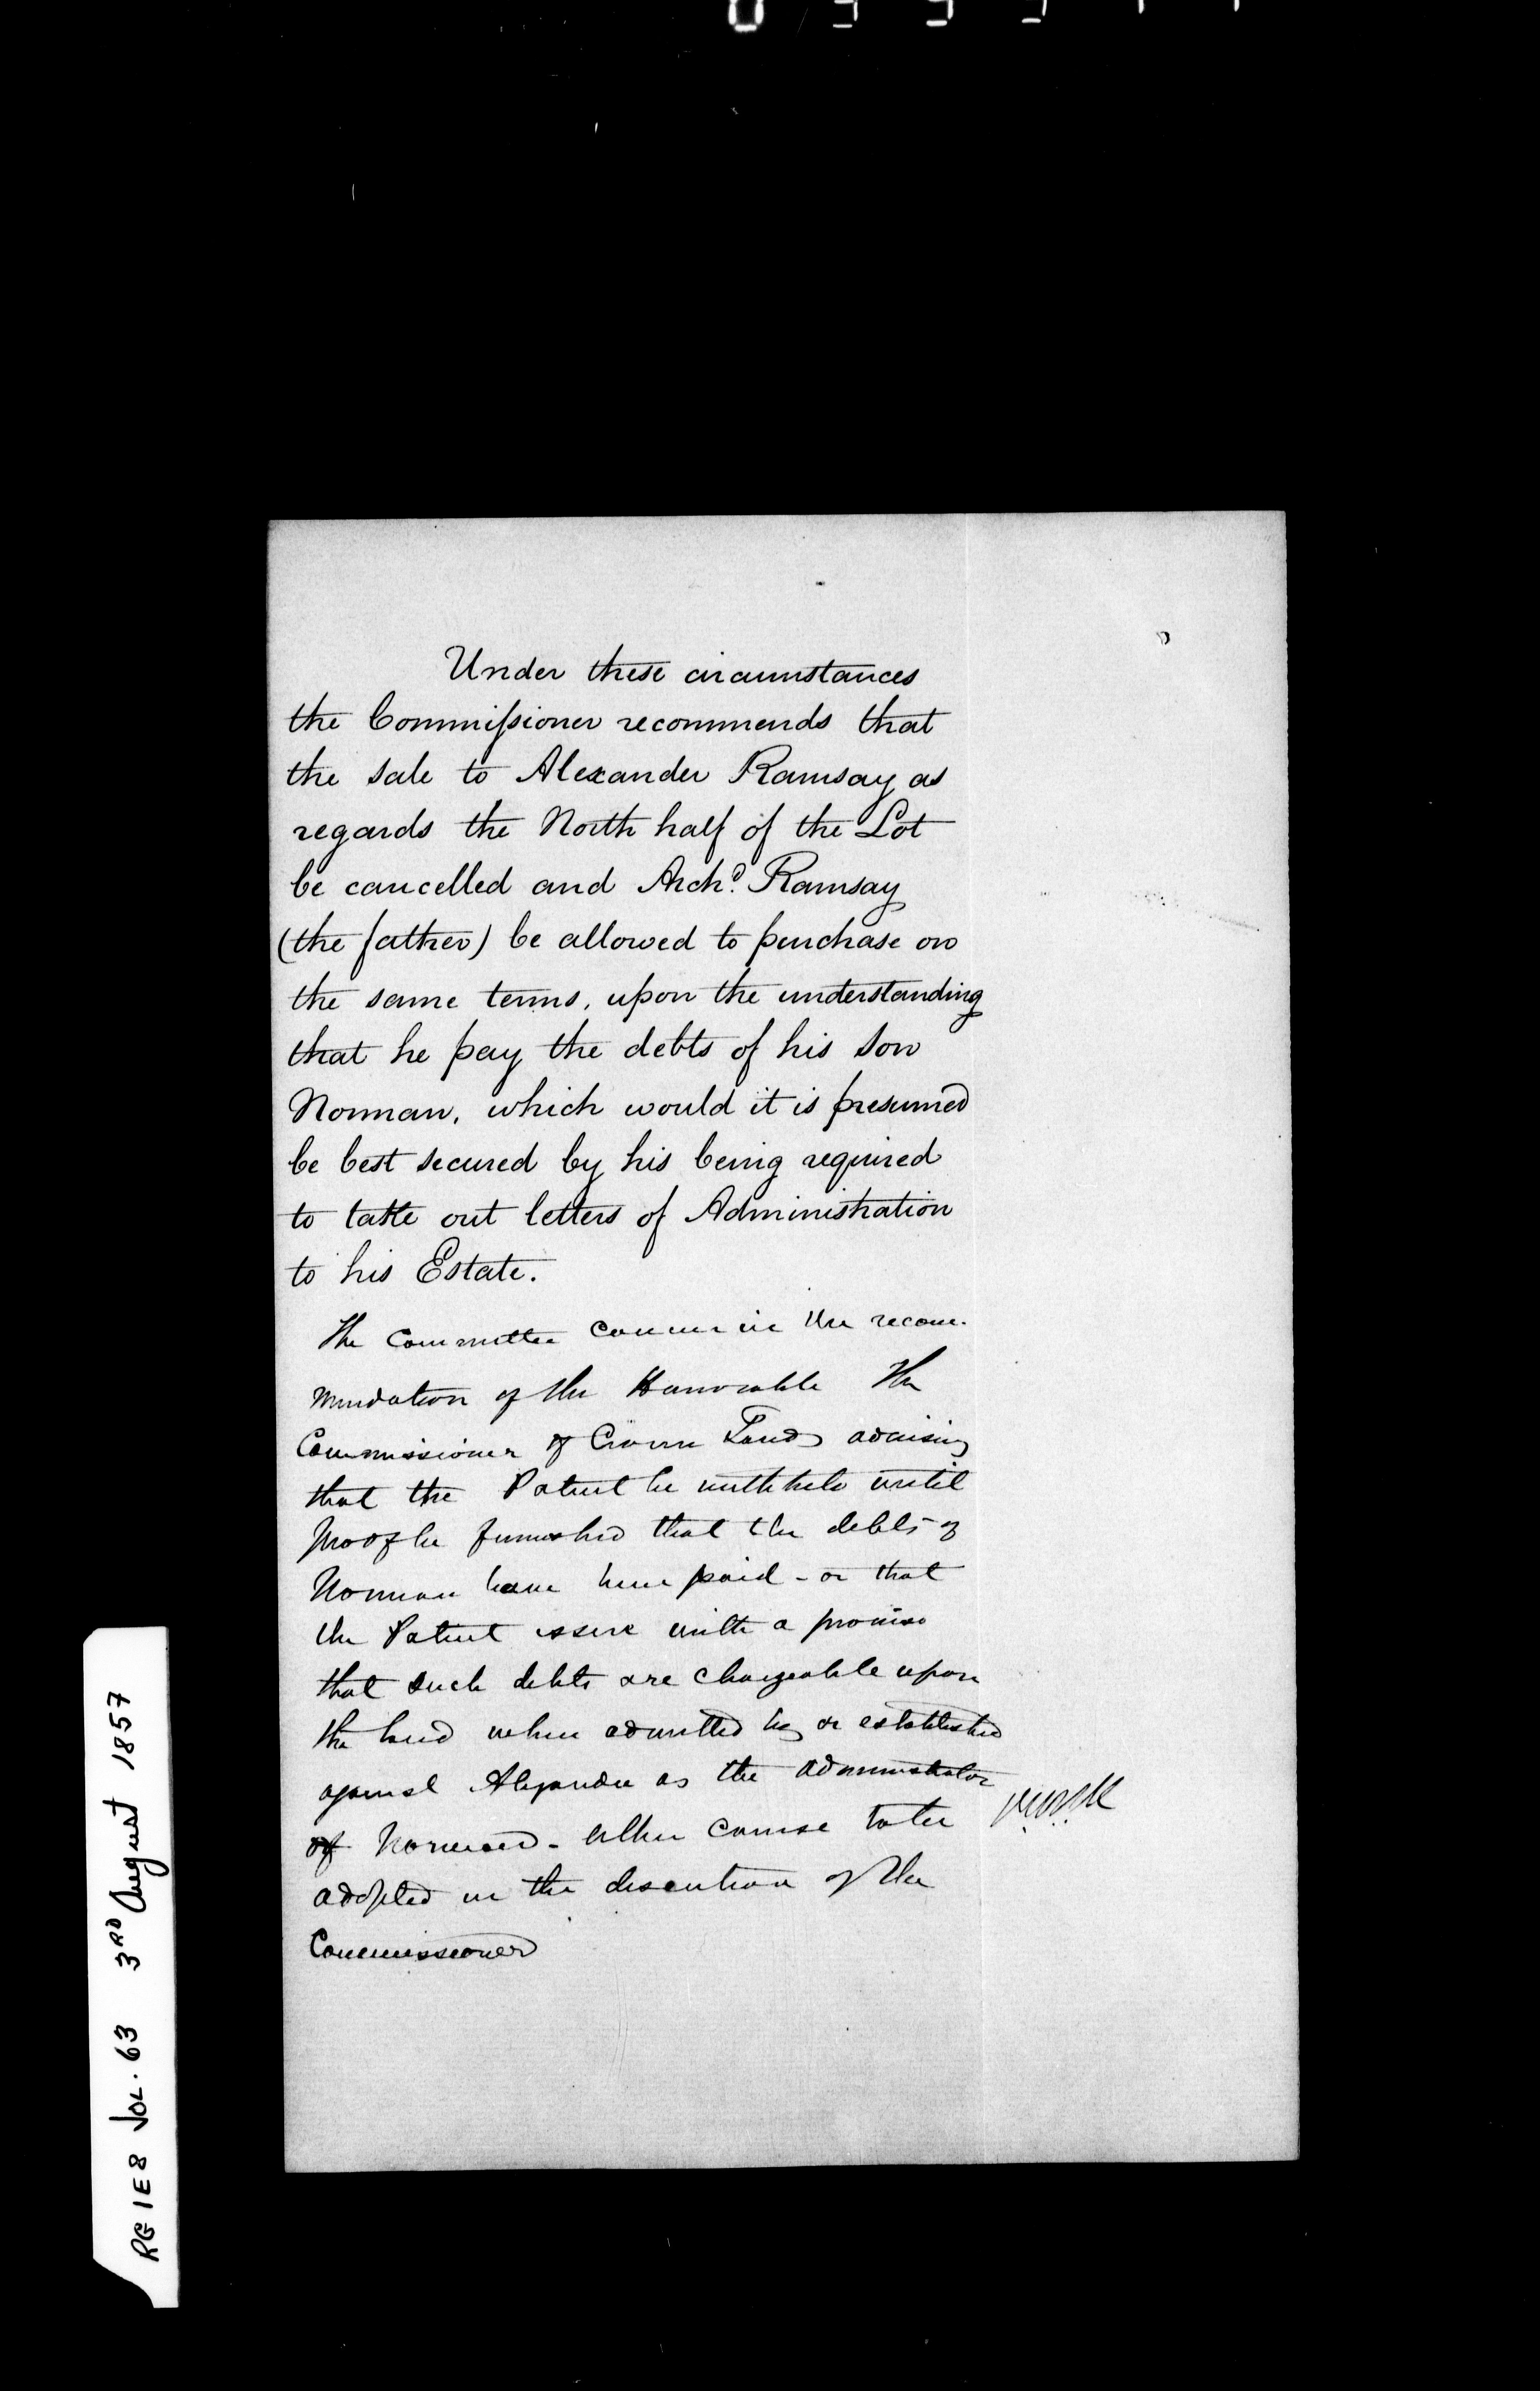 Under these circumstances
the Commissioner recommends that
the sale to Alexander Ramsay as
regards the North half of the Lot
be cancelled and Archd. Ramsay
(the father) be allowed to purchase on
the same terms, upon the understanding
that he pay the debts of his son
Norman, which would it is presumed
be best secured by his being required
to take out letters of Administration
to his Estate.
The Committee concur in the recom-
mendation of the Honorable The
Commissioner of Crown Lands advising
that the Patent be withheld until
proof be furnished that the debts of
Norman have been paid - or that
the Patent issue with a proviso
that such debts are chargeable upon
the land when admitted by or established
against Alexander as the administrator
of Norman - either course to be
adopted in the discretion of the
Commissioner
RG 1 E8 VOL. 63 3RD August 1857